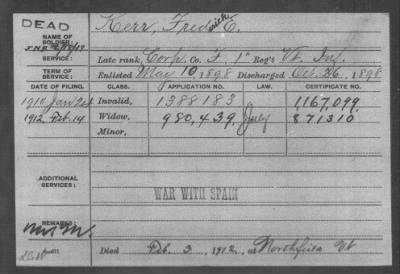 DEAD
NAME OF SOLDIER: Kerr, Fredrick C.
SERVICE: Late rank, Corp. Co. F, 1" Reg't Vt. Inf.
TERM OF SERVICE: Enlisted May 10, 1898 Discharged Oct. 26, 1898
DATE OF FILING. CLASS. APPLICATION NO. CERTIFICATE NO.
1910 Jan 21 Invalid, 1388183 1,167,099
1912 Feb. 14 Widow, 980,439, July 871310
Minor,
ADDITIONAL SERVICES:
WAR WITH SPAIN
REMARKS:
Died Feb. 3, 1912, at Northfield Vt